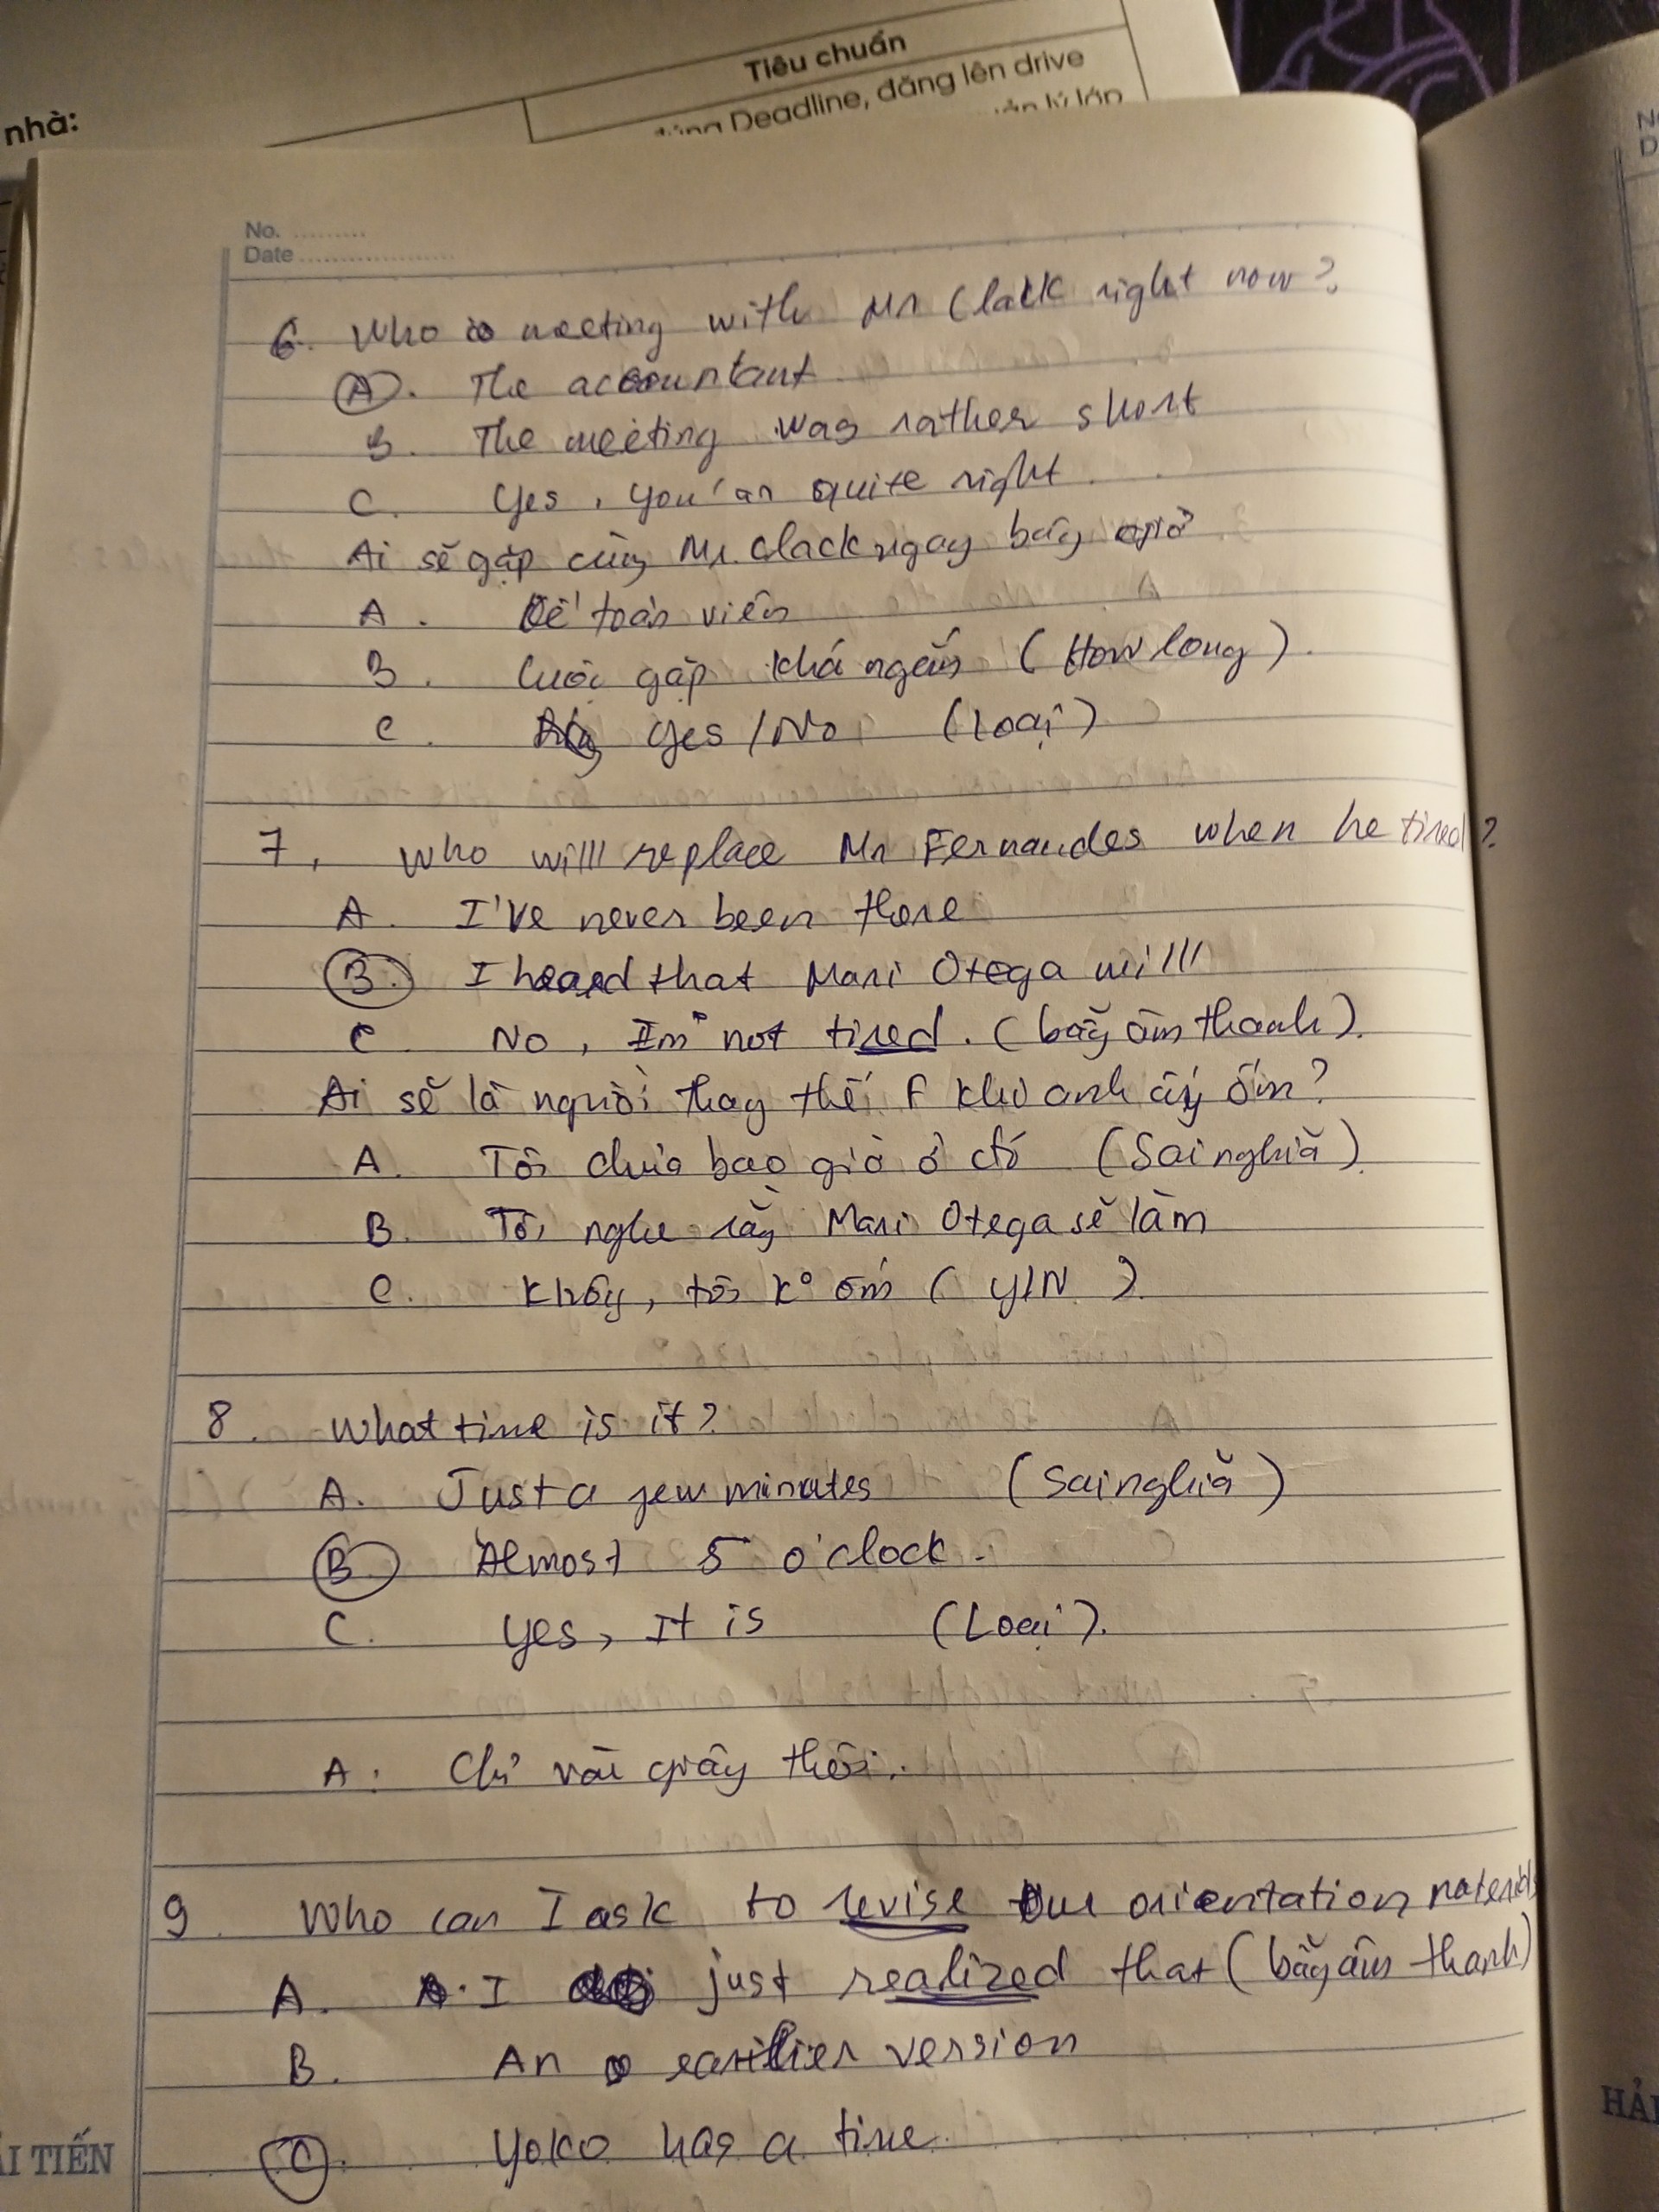 nhà:
Tiêu chuẩn
đúng Deadline, đăng lên drive
quản lý lớp
No. ..........
Date ....................
6. Who is meeting with Mr Clack right now?
A. The accountant
B. The meeting was rather short
C. Yes, you'ar quite right
Ai sẽ gặp cùng Mr. Clack ngay bây giờ
A. Kế toán viên
B. Cuộc gặp khá ngắn (How long).
C. Yes / No (Loại)
7. Who willl replace Mr Fernandes when he tired?
A. I've never been there
B. I heard that Mari Otega willl
C No, I'm not tired. (bẫy âm thanh).
Ai sẽ là người thay thế F khi anh ấy ốm?
A. Tôi chưa bao giờ ở đó (Sai nghĩa)
B. Tôi nghe rằng Mari Otega sẽ làm
C. Không, tôi k° ốm ( Y/N )
8. What time is it?
A. Just a few minutes (Sai nghĩa)
B. Almost 5 o'clock.
C. Yes, It is (Loại).
A. Chỉ vài giây thôi.
9. Who can I ask to revise the orientation materials
A. A. I just realized that (bẫy âm thanh)
B. An earilier version
C. Yoko has a time.
ẢI TIẾN
HẢI